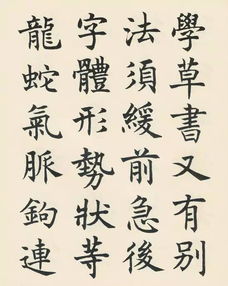 學草書又有别
法須緩前急後
字體形勢狀等
龍蛇氣脈鉤連